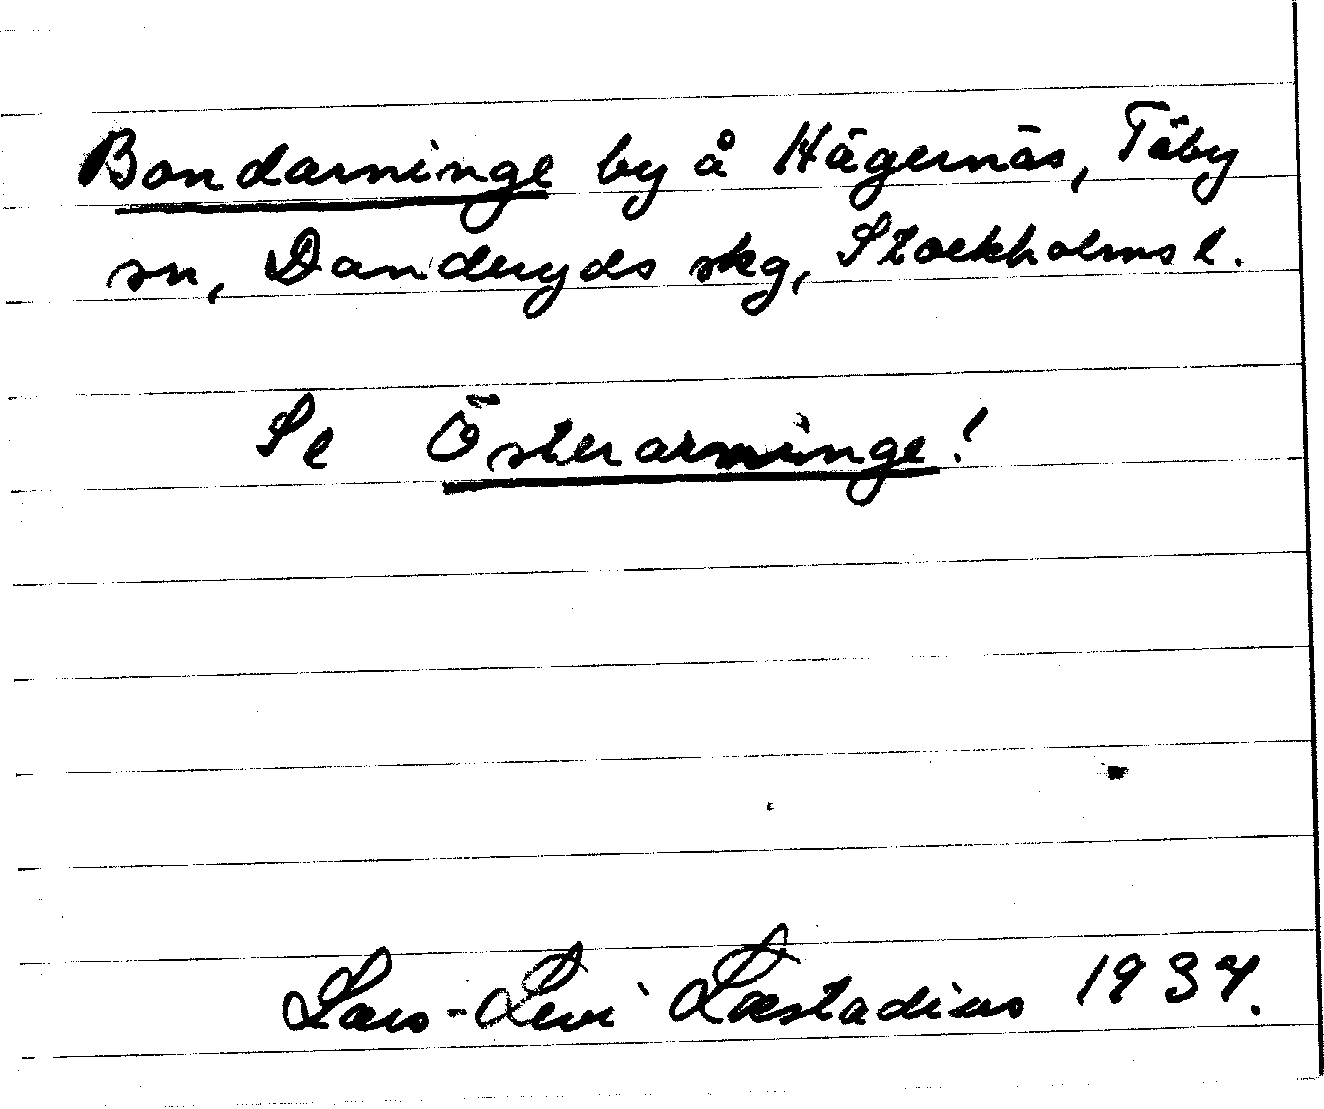 Bondarninge by å Hägernäs, Täby
sn, Danderyds skg, Stockholms l.
Se Österarninge!
Lars-Levi Læstadius 1937.